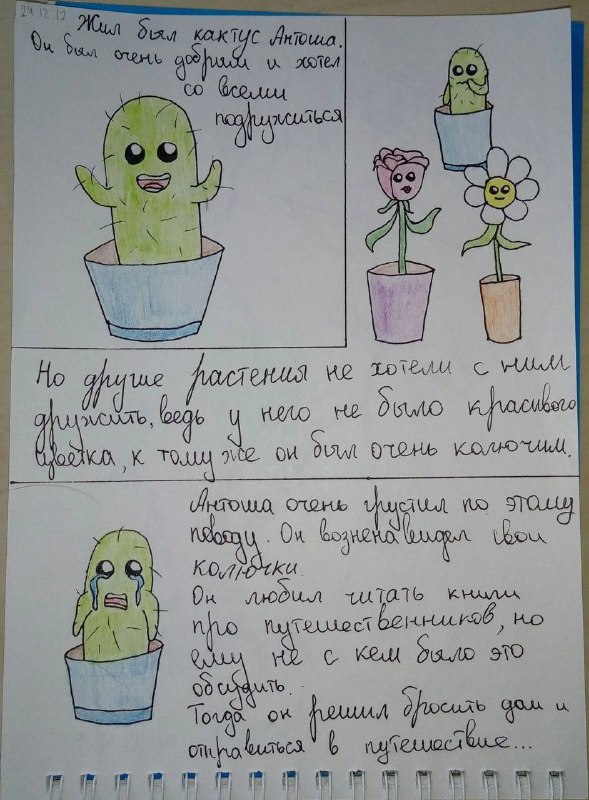 24.12.17
Жил был кактус Антоша.
Он был очень добрым и хотел
со всеми
подружиться
Но другие растения не хотели с ним
дружить, ведь у него не было красивого
цветка, к тому же он был очень колючим.
Антоша очень грустил по этому
поводу. Он возненавидел свои
колючки.
Он любил читать книги
про путешественников, но
ему не с кем было это
обсудить.
Тогда он решил бросить дом и
отправиться в путешествие...